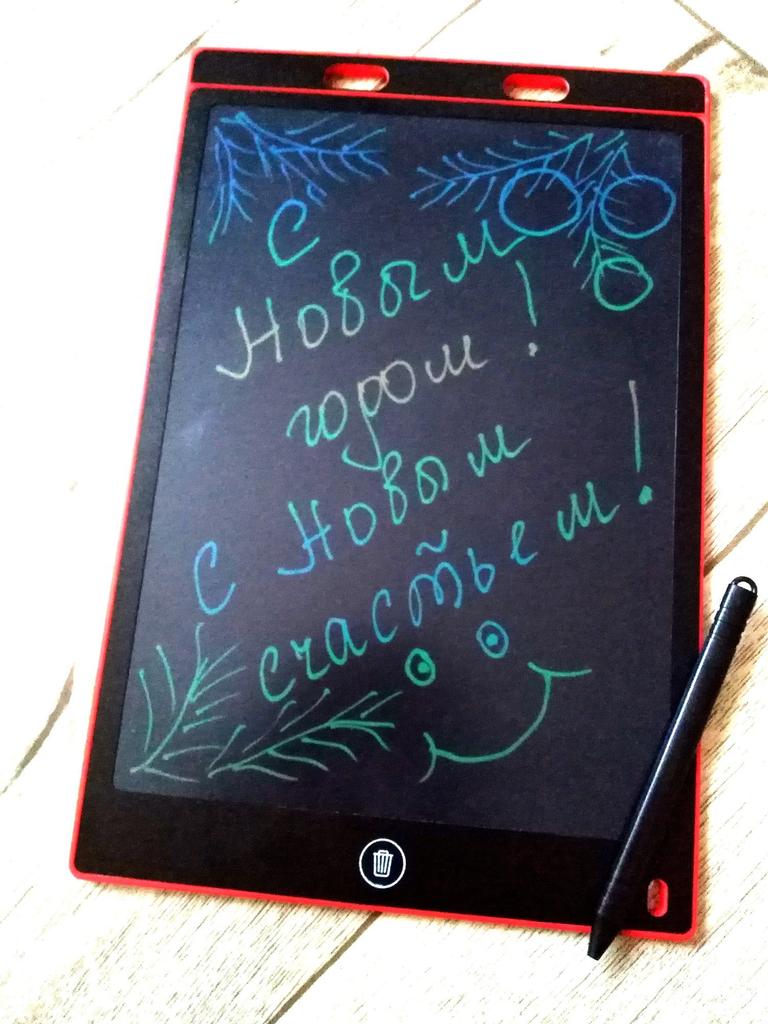 С
Новым
годом!
С Новым
счастьем!